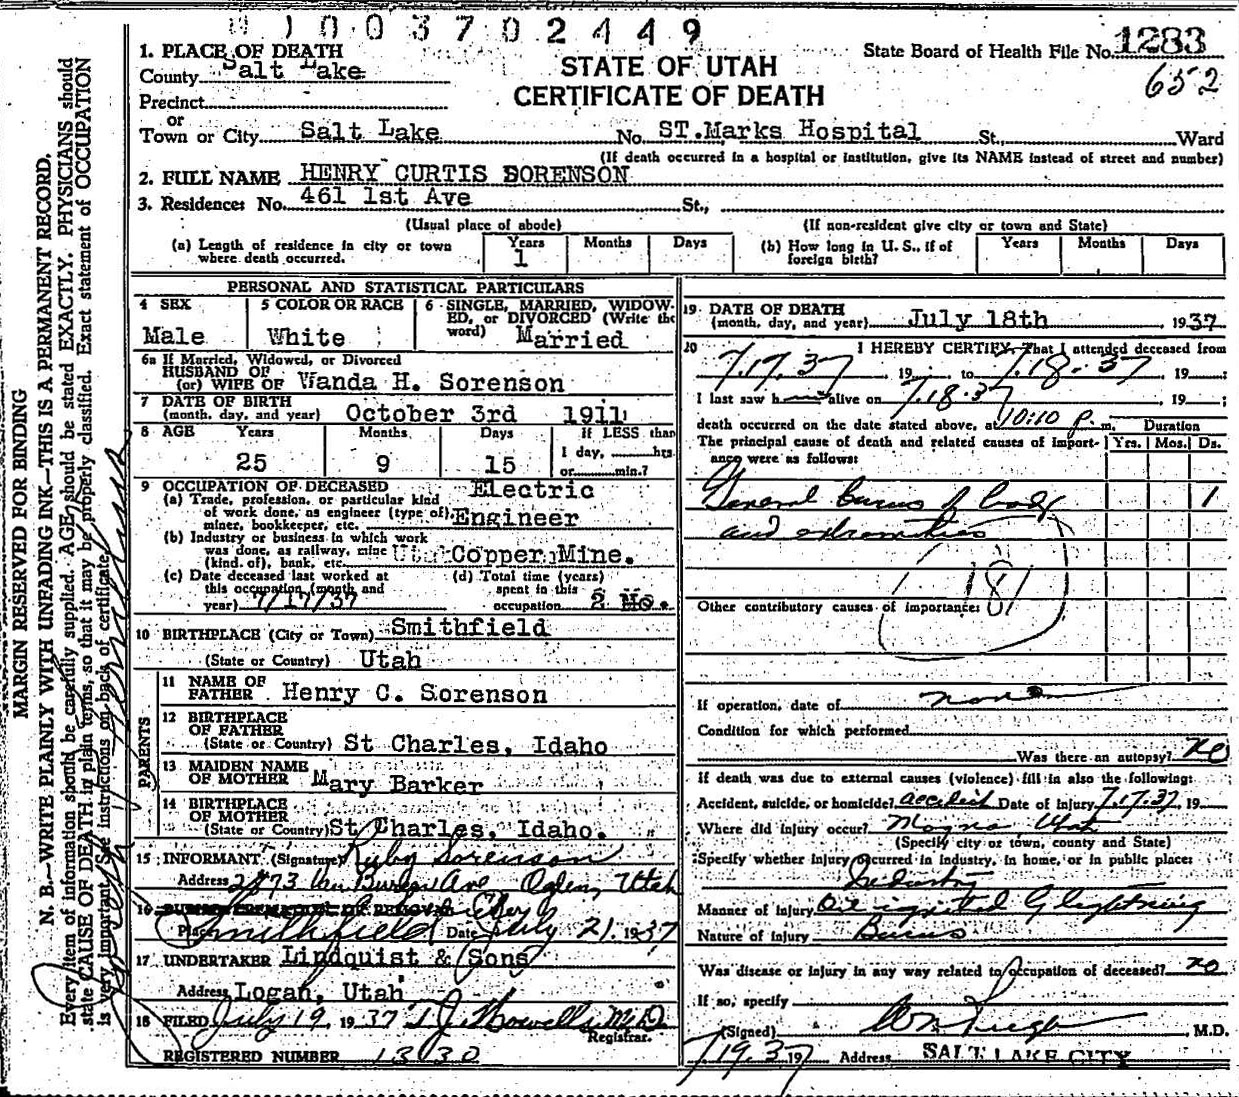 1003702449
1. PLACE OF DEATH
County Salt Lake
Precinct
or
Town or City Salt Lake No. ST.Marks Hospital St., Ward
(If death occurred in a hospital or institution, give its NAME instead of street and number)
STATE OF UTAH
CERTIFICATE OF DEATH
State Board of Health File No. 1283
652
2. FULL NAME HENRY CURTIS SORENSON
3. Residence: No. 461 1st Ave St.,
(Usual place of abode) (If non-resident give city or town and State)
(a) Length of residence in city or town where death occurred. Years 1 Months Days
(b) How long in U. S., if of foreign birth? Years Months Days
MARGIN RESERVED FOR BINDING
N. B.—WRITE PLAINLY WITH UNFADING INK—THIS IS A PERMANENT RECORD.
Every item of information should be carefully supplied. AGE should be stated EXACTLY. PHYSICIANS should
state CAUSE OF DEATH in plain terms, so that it may be properly classified. Exact statement of OCCUPATION
is very important. See instructions on back of certificate.
PERSONAL AND STATISTICAL PARTICULARS
4 SEX Male
5 COLOR OR RACE White
6 SINGLE, MARRIED, WIDOWED, or DIVORCED (Write the word) Married
6a If Married, Widowed, or Divorced
HUSBAND OF
(or) WIFE OF Wanda H. Sorenson
7 DATE OF BIRTH
(month, day, and year) October 3rd 1911
8 AGE Years 25 Months 9 Days 15 If LESS than 1 day, hrs. or min.?
9 OCCUPATION OF DECEASED
(a) Trade, profession, or particular kind of work done, as engineer (type of), miner, bookkeeper, etc. Electric Engineer
(b) Industry or business in which work was done, as railway, mine (kind. of), bank, etc. Utah Copper Mine.
(c) Date deceased last worked at this occupation (month and year) 7/17/37
(d) Total time (years) spent in this occupation 2 Mo.
10 BIRTHPLACE (City or Town) Smithfield
(State or Country) Utah
PARENTS
11 NAME OF FATHER Henry C. Sorenson
12 BIRTHPLACE OF FATHER
(State or Country) St Charles, Idaho
13 MAIDEN NAME OF MOTHER Mary Barker
14 BIRTHPLACE OF MOTHER
(State or Country) St Charles, Idaho.
15 INFORMANT (Signature) Ruby Sorenson
Address 2873 Van Buren Ave Ogden, Utah
16 BURIAL, CREMATION OR REMOVAL
Place Smithfield Date July 21. 1937
17 UNDERTAKER Lindquist & Sons
Address Logan, Utah
18 FILED July 19, 1937 T.J. Howells M.D.
Registrar.
REGISTERED NUMBER 1330
19 DATE OF DEATH
(month, day, and year) July 18th, 1937
20 I HEREBY CERTIFY, That I attended deceased from
7.17.37, 19 to 7.18.37, 19 ;
I last saw him alive on 7.18.37, 19 ;
death occurred on the date stated above, at 10:10 P. m.
Duration
The principal cause of death and related causes of importance were as follows:
Yrs. Mos. Ds.
General burns of body 1
and extremities
181
Other contributory causes of importance:
If operation, date of none
Condition for which performed
Was there an autopsy? no
If death was due to external causes (violence) fill in also the following:
Accident, suicide, or homicide? accident Date of injury 7.17.37, 19
Where did injury occur? Magna Utah
(Specify city or town, county and State)
Specify whether injury occurred in industry, in home, or in public place:
Industry
Manner of injury Oil ignited by lightning
Nature of injury Burns
Was disease or injury in any way related to occupation of deceased? no
If so, specify
(Signed) M.D.
7.19.37 19 Address SALT LAKE CITY